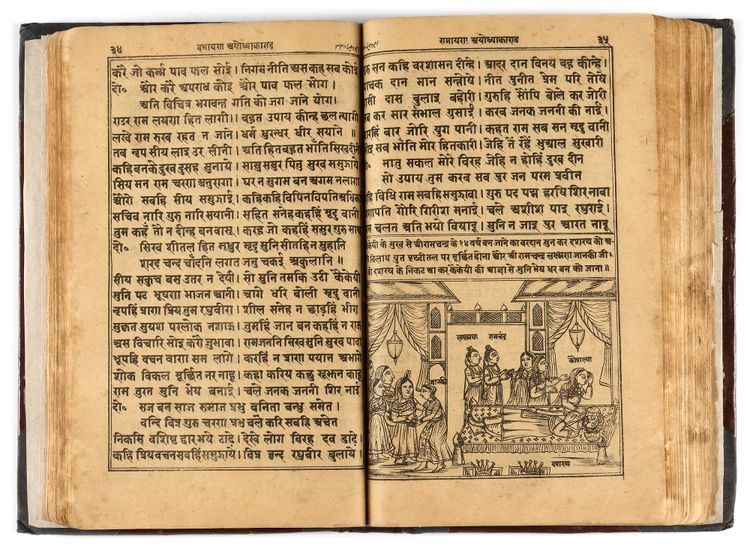 ३४ रामायण अयोध्याकाण्ड
करै जो कर्म्म पाव फल सोई। निगम नीति असकह सब कोई
दो॰ और करै अपराध कोइ और पाव फल भोग।
अति विचित्र भगवन्त गति को जग जाने योग।
राउ राम लषण हित लागी। बहुत उपाय कीन्ह छल त्यागी
लखे राम रुख रहत न जाने। धर्म धुरन्धर धीर सयाने॥
तब नृप सीय लाइ उर लीनी। अति हित बहुत भाँति सिखदीनी
कहि बनके दुख दुसह सुनाये। सासु ससुर पितु सुख समुझाये
सिय मन राम चरण अनुरागा। घर न सुगम बन अगम न लागा
औरो सबहि सीय समुझाई। कहिकहि विपिन विपति अधिकाई
सचिव नारि गुरु नारि सयानी। सहित सनेह कहहिं मृदु वानी
तुम कहँ तो न दीन्ह बनवासू। करहु जो कहहिं ससुर गुरु सासू
दो॰ सिख शीतल हित मधुर मृदु सुनि सीतहि न सुहानि
शरद चन्द चाँदनि लगत जनु चकई अकुलानि॥
सीय सकुच बस उतर न देयी। सो सुनि तमकि उठी कैकेयी
मुनि पट भूषण भाजन आनी। आगे धरि बोली मृदु वानी
नृपहिं प्राण प्रिय तुम रघुवीरा। शील सनेह न छाड़हिं भीरा
सुकृत सुयश परलोक नशाऊ। तुमहिं जान बन कहहिं न राऊ
अस विचारि सोइ करो जो भावा। राम जननि सिख सुनि सुख पावा
भूपहि वचन वाण सम लागे। करहिं न प्राण पयान अभागे
शोक विकल मूर्छित नर नाहू। कहा करिय कछु सूझन काहू
राम तुरत मुनि भेष बनाई। चले जनक जननी शिर नाई
दो॰ सज बन साज समाज प्रभु वनिता बन्धु समेत।
वन्दि विप्र गुरु चरण प्रभु चले करि सबहि अचेत
निकसि वशिष्ठ द्वार भये ठाढ़े। देखे लोग विरह दव डाढ़े
कहि प्रिय वचन सबहिं समुझाये। विप्र वृन्द रघुवीर बुलाये।
रामायण अयोध्याकाण्ड ३५
गुरु सन कहि वर्षाशन दीन्हे। आदर दान विनय बहु कीन्हे।
याचक दान मान सन्तोषे। मीत पुनीत प्रेम परि तोषे
दासी दास बुलाइ बहोरी। गुरुहि सौंपि बोले कर जोरी
सब कर सार सँभाल गुसाईं। करब जनक जननी की नाईं।
बारहिं बार जोरि युग पानी। कहत राम सब सन मृदु वानी
सोइ सब भाँति मोर हितकारी। जेहि ते रहैं भुआल सुखारी
मातु सकल मोरे विरह जेहि न होहिं दुख दीन
सो उपाय तुम करब सब पुर जन परम प्रवीन
यहि विधि राम सबहिं समुझावा। गुरु पद पद्म हर्षि शिर नावा
गणपति गौरि गिरीश मनाई। चले अशीश पाइ रघुराई।
राम चलत अति भयो विषादू। सुनि न जाइ पुर आरत नादू
कैकेयी के मुख से श्रीरामचन्द्र के १४ वर्ष बन जाने का वरदान सुन कर दशरथ को
विलाप युत पृथ्वीतल पर मूर्छित होना और श्रीरामचन्द्र लक्ष्मण जानकी जी।
दशरथ के निकट आ कर कैकेयी की आज्ञा से मुनि भेष धर बन को जाना॥
लक्ष्मण रामचंद्र
कौशल्या
दशरथ